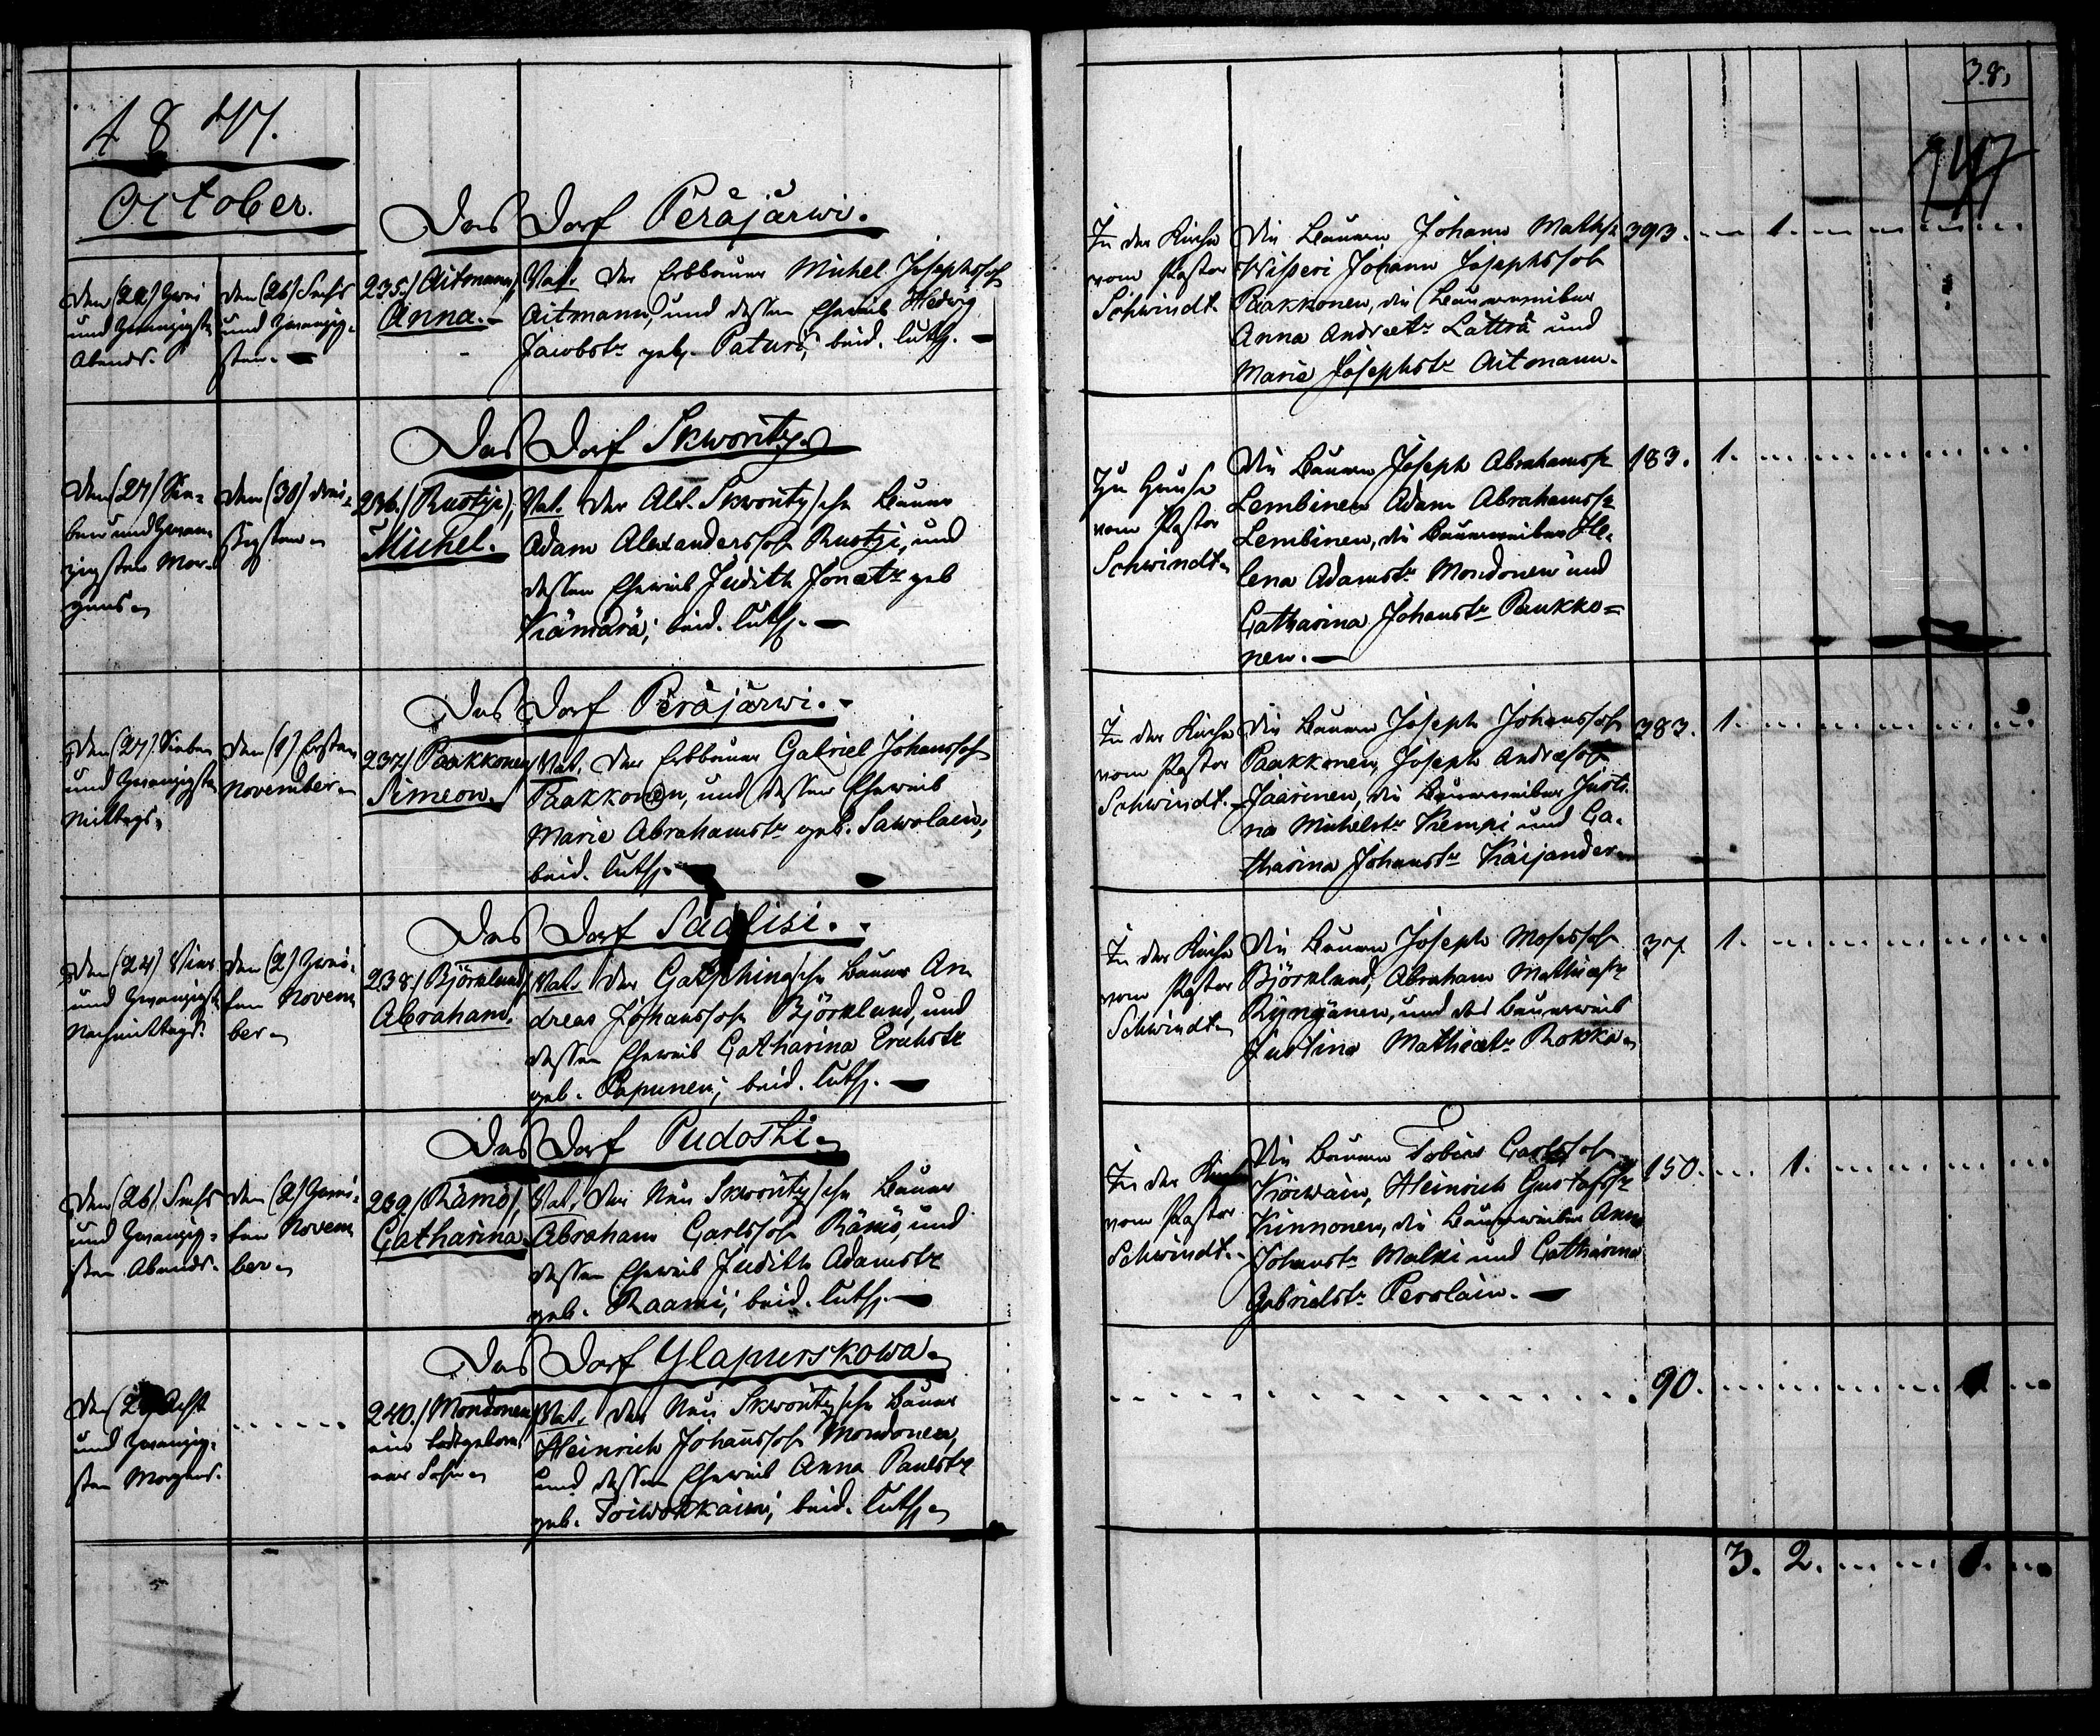 38.
1847.
October.
Das Dorf Peräjärwi.
Den (22) Zwei
und Zwanzigsten
Abends.
Den (26) Sechs
und Zwanzig-
sten.
235./ Aitmann,
Anna.
Vat. der Erbbauer Michel Josephssohn
Aitmann, und dessen Eheweib Hedwig
Jacobstr geb. Paturi; beid. luth.
In der Kirche
vom Pastor
Schwindt
Die Bauern Johann Mathss.
Wisseri Johann Josephssohn
Paakkonen, die Bauernweiber
Anna Andreastr Lätträ und
Marie Josephstr Aitmann.
393. 1.
Das Dorf Skworitz.
Den (27) Sie-
ben und Zwan-
zigsten Mor-
gens
Den (30) Drei-
ßigsten
236./ Rustji,
Michel.
Vat. der Alt. Skworitzsche Bauer
Adam Alexanderssohn Rustji, und
dessen Eheweib Judith Jonastr geb
Kämärä; beid. luth.
Zu Hause
vom Pastor
Schwindt
Die Bauern Joseph Abrahamss.
Lembinen Adam Abrahamss.
Lembinen, die Bauernweiber He-
lena Adamstr Mondonen und
Catharina Johanstr Paukko=
nen.
183. 1.
Das Dorf Peräjärwi.
Den (27) Sieben
und Zwanzigsten
Mittags.
Den (1) Ersten
November
237./ Paakkonen
Simeon.
Vat. der Erbbauer Gabriel Johanssohn
Paakkonen, und dessen Eheweib
Marie Abrahamstr geb. Sawolain;
beid. luth.
In der Kirche
vom Pastor
Schwindt.
Die Bauern Joseph Johanssohn
Paakkonen, Joseph Andreassohn
Jäärinen, die Bauernweiber Justi-
na Michelstr Kempi und Ca-
tharina Johanstr Kaijander
383. 1.
Das Dorf Saalisi.
Den (24) Vier
und Zwanzigsten
Nachmittags.
Den (2) Zwei-
ten Novem
ber
238./ Björklund,
Abraham.
Vat. der Gatschinasche Bauer An
dreas Johanssohn Björklund, und
dessen Eheweib Catharina Erichstr
geb. Papunen; beid. luth.
In der Kirche
vom Pastor
Schwindt
Die Bauern Joseph Mosessohn
Björklund, Abraham Mathiass.
Ryngänen, und das Bauernweib
Justina Mathiastr Rokka
37 1.
Das Dorf Pudosti
Den (26) Sechs
und Zwanzig-
sten Abends.
Den (2) Zwei-
ten Novem
ber
239./ Rämö,
Catharina.
Vat. der Neu Skworitzsche Bauer
Abraham Carlssohn Rämö, und
dessen Eheweib Judith Adamstr
geb. Raami; beid. luth.
In der Kirche
vom Pastor
Schwindt.
Die Bauern Tobias Carlssohn
Koiwain, Heinrich Gustafss.
Kinnonen, die Bauernweiber Anna
Johanstr Malki und Catharina
Gabrielstr Perolain.
150. 1.
Das Dorf Ylapurskowa
Den (28) Acht
und Zwanzig-
sten Morgens.
240./ Mondonen
ein todtgebore
ner Sohn
Vat. der Neu Skworitzsche Bauer
Heinrich Johanssohn Mondonen,
und dessen Eheweib Anna Paulstr
geb. Toiwokkain; beid. luth.
90. 1
3. 2. 1.